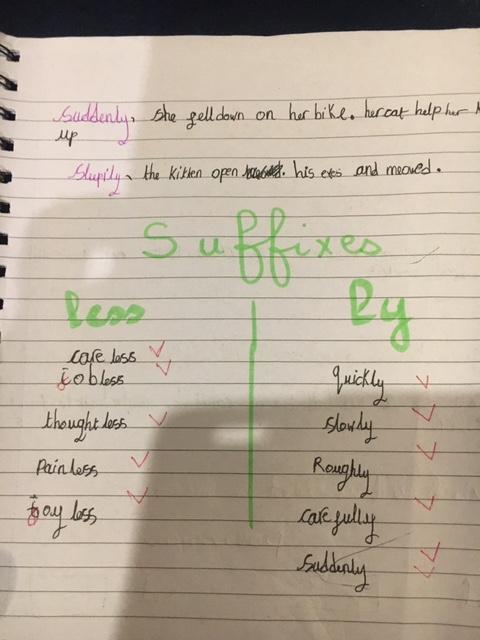 Suddenly, she felldown on her bike. her cat help her
up
Slupily, the kitten open his eyes and meowed.
Suffixes
less
ly
careless
jobless
thoughtless
Painless
joyless
quickly
slowly
Roughly
carefully
suddenly